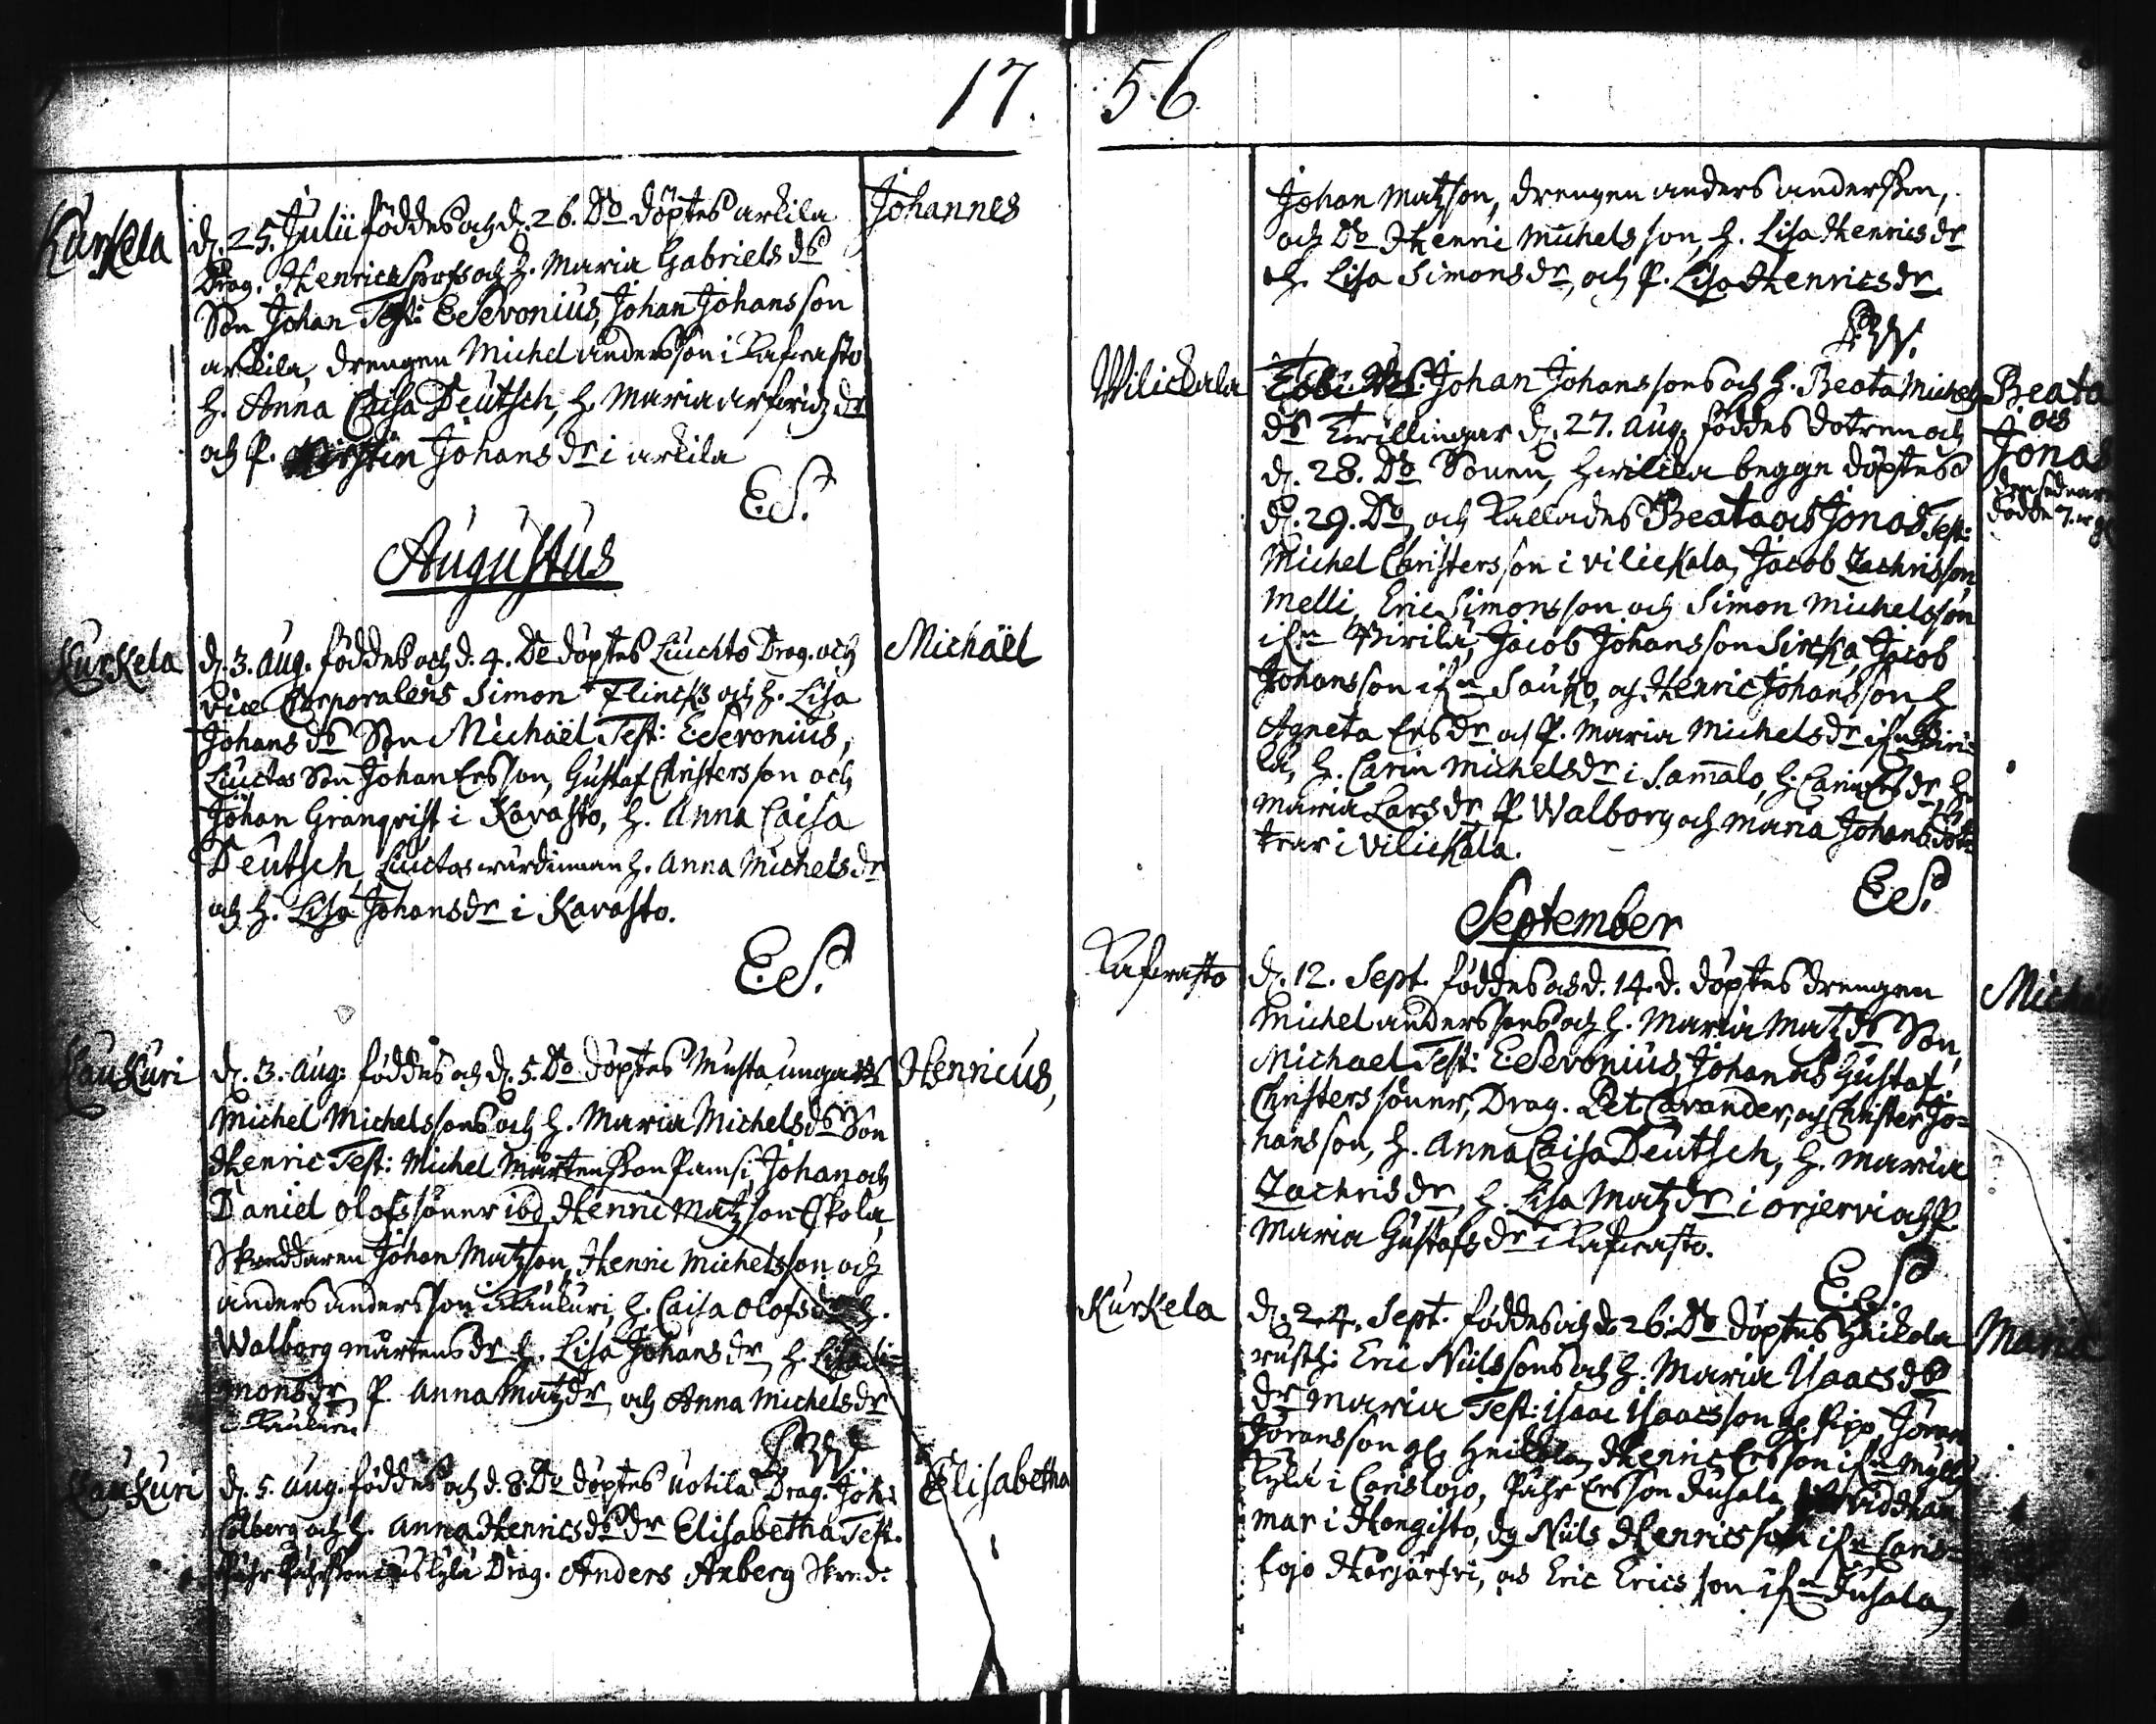 17.
Kurkela
d. 25. Julii föddes och d. 26. Do döptes arkila
Drag. Henrics och h. Maria Gabriels ds
Son Johan Test: E Sevonius, Johan Johansson
arkila, drengen Michel andersson i Kafvasto
h. Anna Caisa Deutsch, h. Maria arfvidz dr
och P. Kirstin Johans dr i arkila
E.S.
Johannes
Augustus
Kurkela
d. 3. aug. föddes och d. 4. Do döptes Liuchto Drag. och
vice Corporalens Simon Flincks och h. Lisa
Johans ds Son Michaël Test: E Sevonius,
Liuctos Son Johan Ersson, Gustaf Christersson och
Johan Granqvist i Kavasto, h. Anna Caisa
Deutsch, Liuctos wärdinnan h. Anna Michels dr
och h. Lisa Johansdr i Kavasto.
E.S.
Michaël
Kaukuri
d. 3. aug: föddes och d. 5. Do döptes Mustaunga
Michel Michelssons och h. Maria Michels ds Son
Henric Test: Michel Mårtensson Pamsi, Johan och
Daniel olofs söner ibd Henric Matzson Eskola,
Skreddaren Johan Matzson, Henric Michelsson och
anders andersson i Kaukuri, h. Caisa olofs dr h.
Walborg mårtens dr h. Lisa Johans dr, h. Lisa Si=
mons dr, P. Anna Matz dr, och Anna Michels dr
i Kaukuri
Henricus,
Kaukuri
d. 5. aug. föddes och d. 8. Do döptes uotila Drag. Joh:
Colberg och h. Anna Henrics ds dr Elisabetha Test.
Drag. Anders Axberg Skred:
Elisabetha
56
Johan Matzson, drengen anders andersson,
och Do Henric Michelsson, h. Lisa Henrics dr
h. Lisa Simons dr, och P. Lisa Henrics dr
Wilickala
Johan Johanssons och h. Beata Michels
ds Twillingar d. 27. aug. föddes dotren och
d. 28. Do Sonen, hwilcka begge döptes
d. 29. Do, och kallades Beata och Jonas Test:
Michel Christersson i vilickala, Jacob Zachrisson
Melli, Eric Simonsson och Simon Michelsson
ifrn Pirilä, Jacob Johansson Sircka, Jacob
Johansson ifrn Sauko, och Henric Johansson, h
Agneta Ers dr och P. Maria Michels dr ifrn Piri=
lä, h. Carin Michels dr i Samalo, h. Carin Ers dr, h.
Maria Lars dr, P Walborg och Maria Johans döt=
trar i vilickala.
E.S.
Beata
och
Jonas
den sednare
dödde
September
Kafvasto
d. 12. Sept. föddes och d. 14. d. döptes drengen
Michel anderssons och h. Maria Matz ds Son,
Michael Test: E Sevonius, Johan och Gustaf
Christers söner, Drag. Pet Cavander, och Christer Jo=
hansson, h. Anna Caisa Deutsch, h. Maria
Zachris dr, h. Lisa Matz dr i orjervi och P
Maria Gustafs dr i Kafvasto.
E.S.
Kurkela
d. 24. Sept. föddes och d. 26. Do döptes Heikola
rusth: Eric Nilssons och h. Maria Isaacs ds
dr Maria Test: Isaac Isaacsson Pipo, Jöran
Jöransson Heikkola, Henric Ersson ifrn Mylly
kylä i Carislojo, Påhr Ersson Suhala,
mar i Hongisto, dg Nils Henricsson ifrn Caris=
lojo Härjärfvi, och Eric Ericsson ifrn Suhala,
Maria